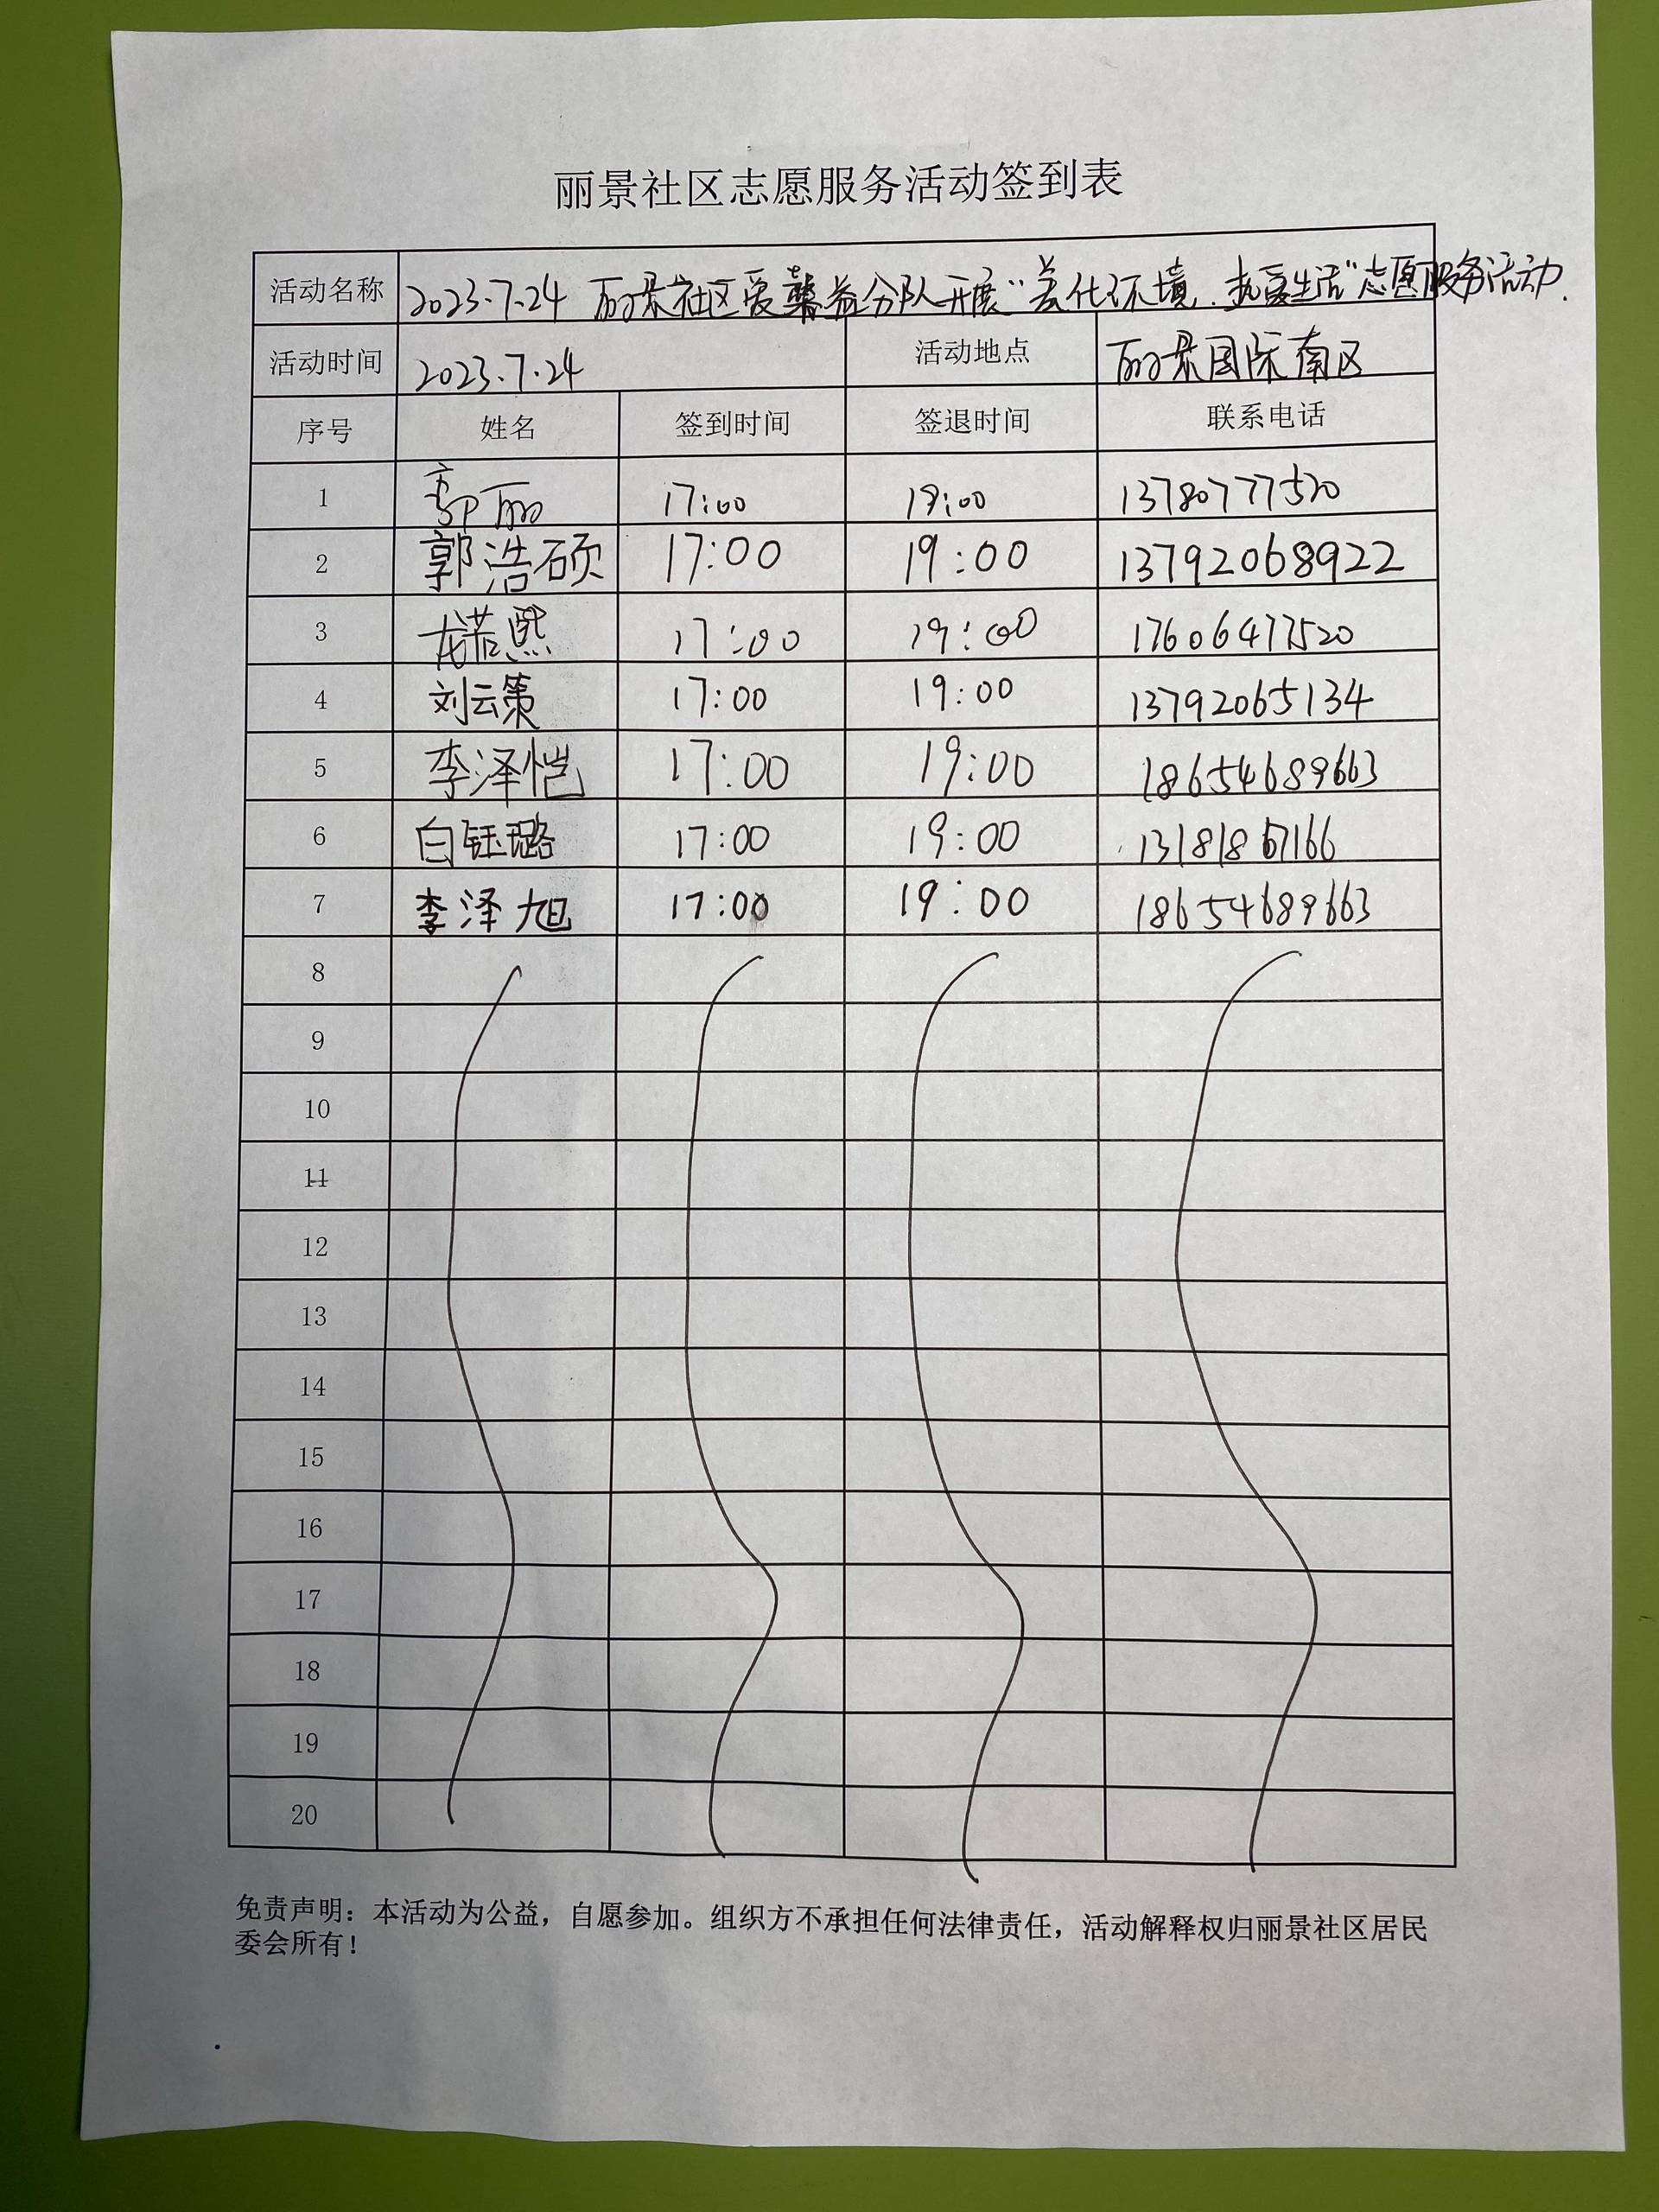 丽景社区志愿服务活动签到表
活动名称 2023.7.24 丽景社区爱馨益分队开展“美化环境.热爱生活”志愿服务活动.
活动时间 2023.7.24 活动地点 丽景国际南区
序号 姓名 签到时间 签退时间 联系电话
1 郭丽 17:00 19:00 13780777520
2 郭浩硕 17:00 19:00 13792068922
3 龙若熙 17:00 19:00 17606477520
4 刘云策 17:00 19:00 13792065134
5 李泽恺 17:00 19:00 18654689663
6 白钰璐 17:00 19:00
7 李泽旭 17:00 19:00 18654689663
8
9
10
11
12
13
14
15
16
17
18
19
20
免责声明：本活动为公益，自愿参加。组织方不承担任何法律责任，活动解释权归丽景社区居民
委会所有！